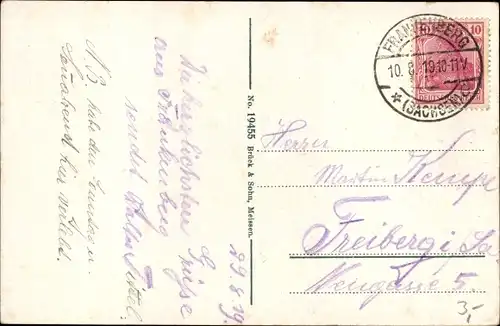 Die herzlichsten Grüße
aus Frankenberg
sendet
N.B. habe den
Sonnabend hier verlebt.
29.8.19.
No. 19455 Brück & Sohn, Meissen.
FRANKENBERG
10. 8. 19 10-11 V.
* (SACHSEN)
10
Herrn
Martin Kempe
Freiberg i. Sa
Neugasse 5.
3,-